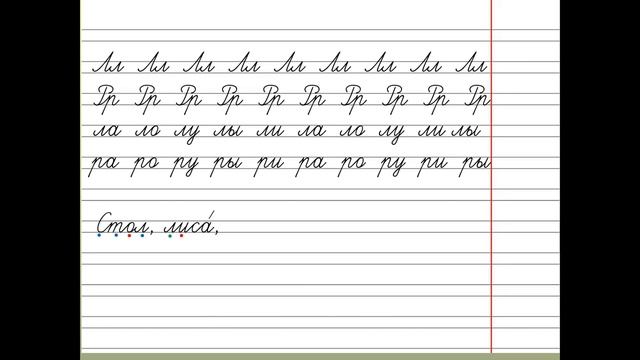 Лл Лл Лл Лл Лл Лл Лл Лл Лл
Рр Рр Рр Рр Рр Рр Рр Рр Рр Рр
ла ло лу лы ли ла ло лу ли лы
ра ро ру ры ри ра ро ру ри ры
Стол, лиса́,